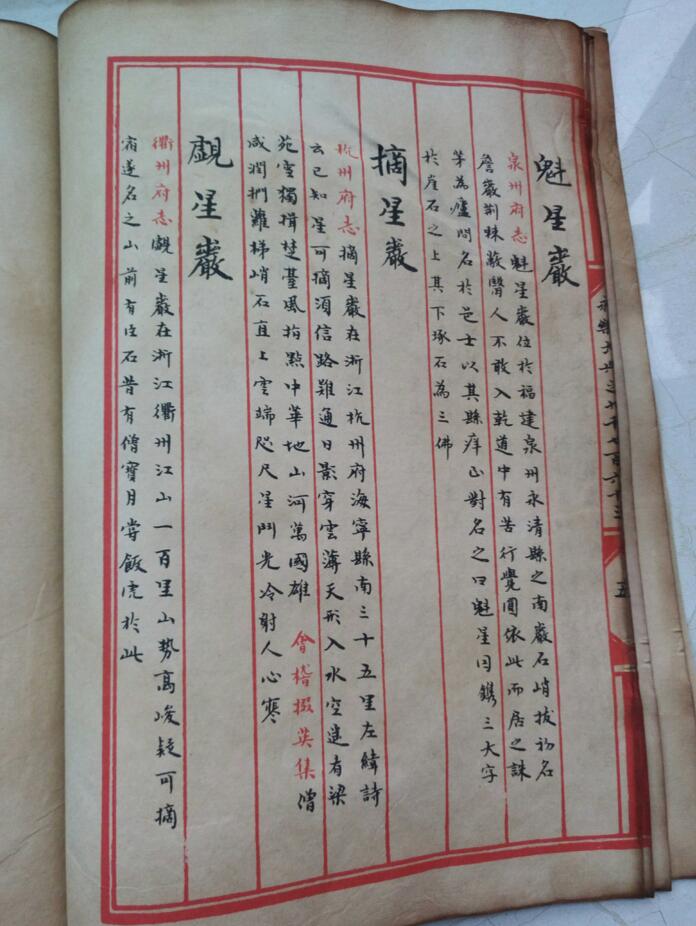 魁星巖
泉州府志魁星巖位於福建泉州永清縣之南巖石峭拔初名
詹巖荆棘蔽翳人不敢入乾道中有苦行覺圓依此而居之誅
茅為廬問名於邑士以其縣庠正對名之曰魁星因鐫三大字
於崖石之上其下琢石為三佛
摘星巖
杭州府志摘星巖在浙江杭州府海寧縣南三十五里左緯詩
云已知星可摘須信路難通日影穿雲薄天形入水空遠有梁
苑雪獨揖楚臺風指點中華地山河萬國雄 會稽掇英集僧
咸潤捫蘿梯峭石直上雲端咫尺星鬥光冷射人心寒
覷星巖
衢州府志覷星巖在浙江衢州江山一百里山勢高峻疑可摘
宿遂名之山前有巨石昔有僧寶月嘗飯虎於此
五